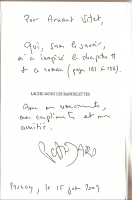 Pour Arnaud
Qui, sans le savoir,
m'a inspiré le chapitre 11
(pages 151 à 156).
LÂCHE-NOUS LES BANDELETTES
Avec mes remerciements,
mes compliments et mon
amitié.
le 15 juin 2009